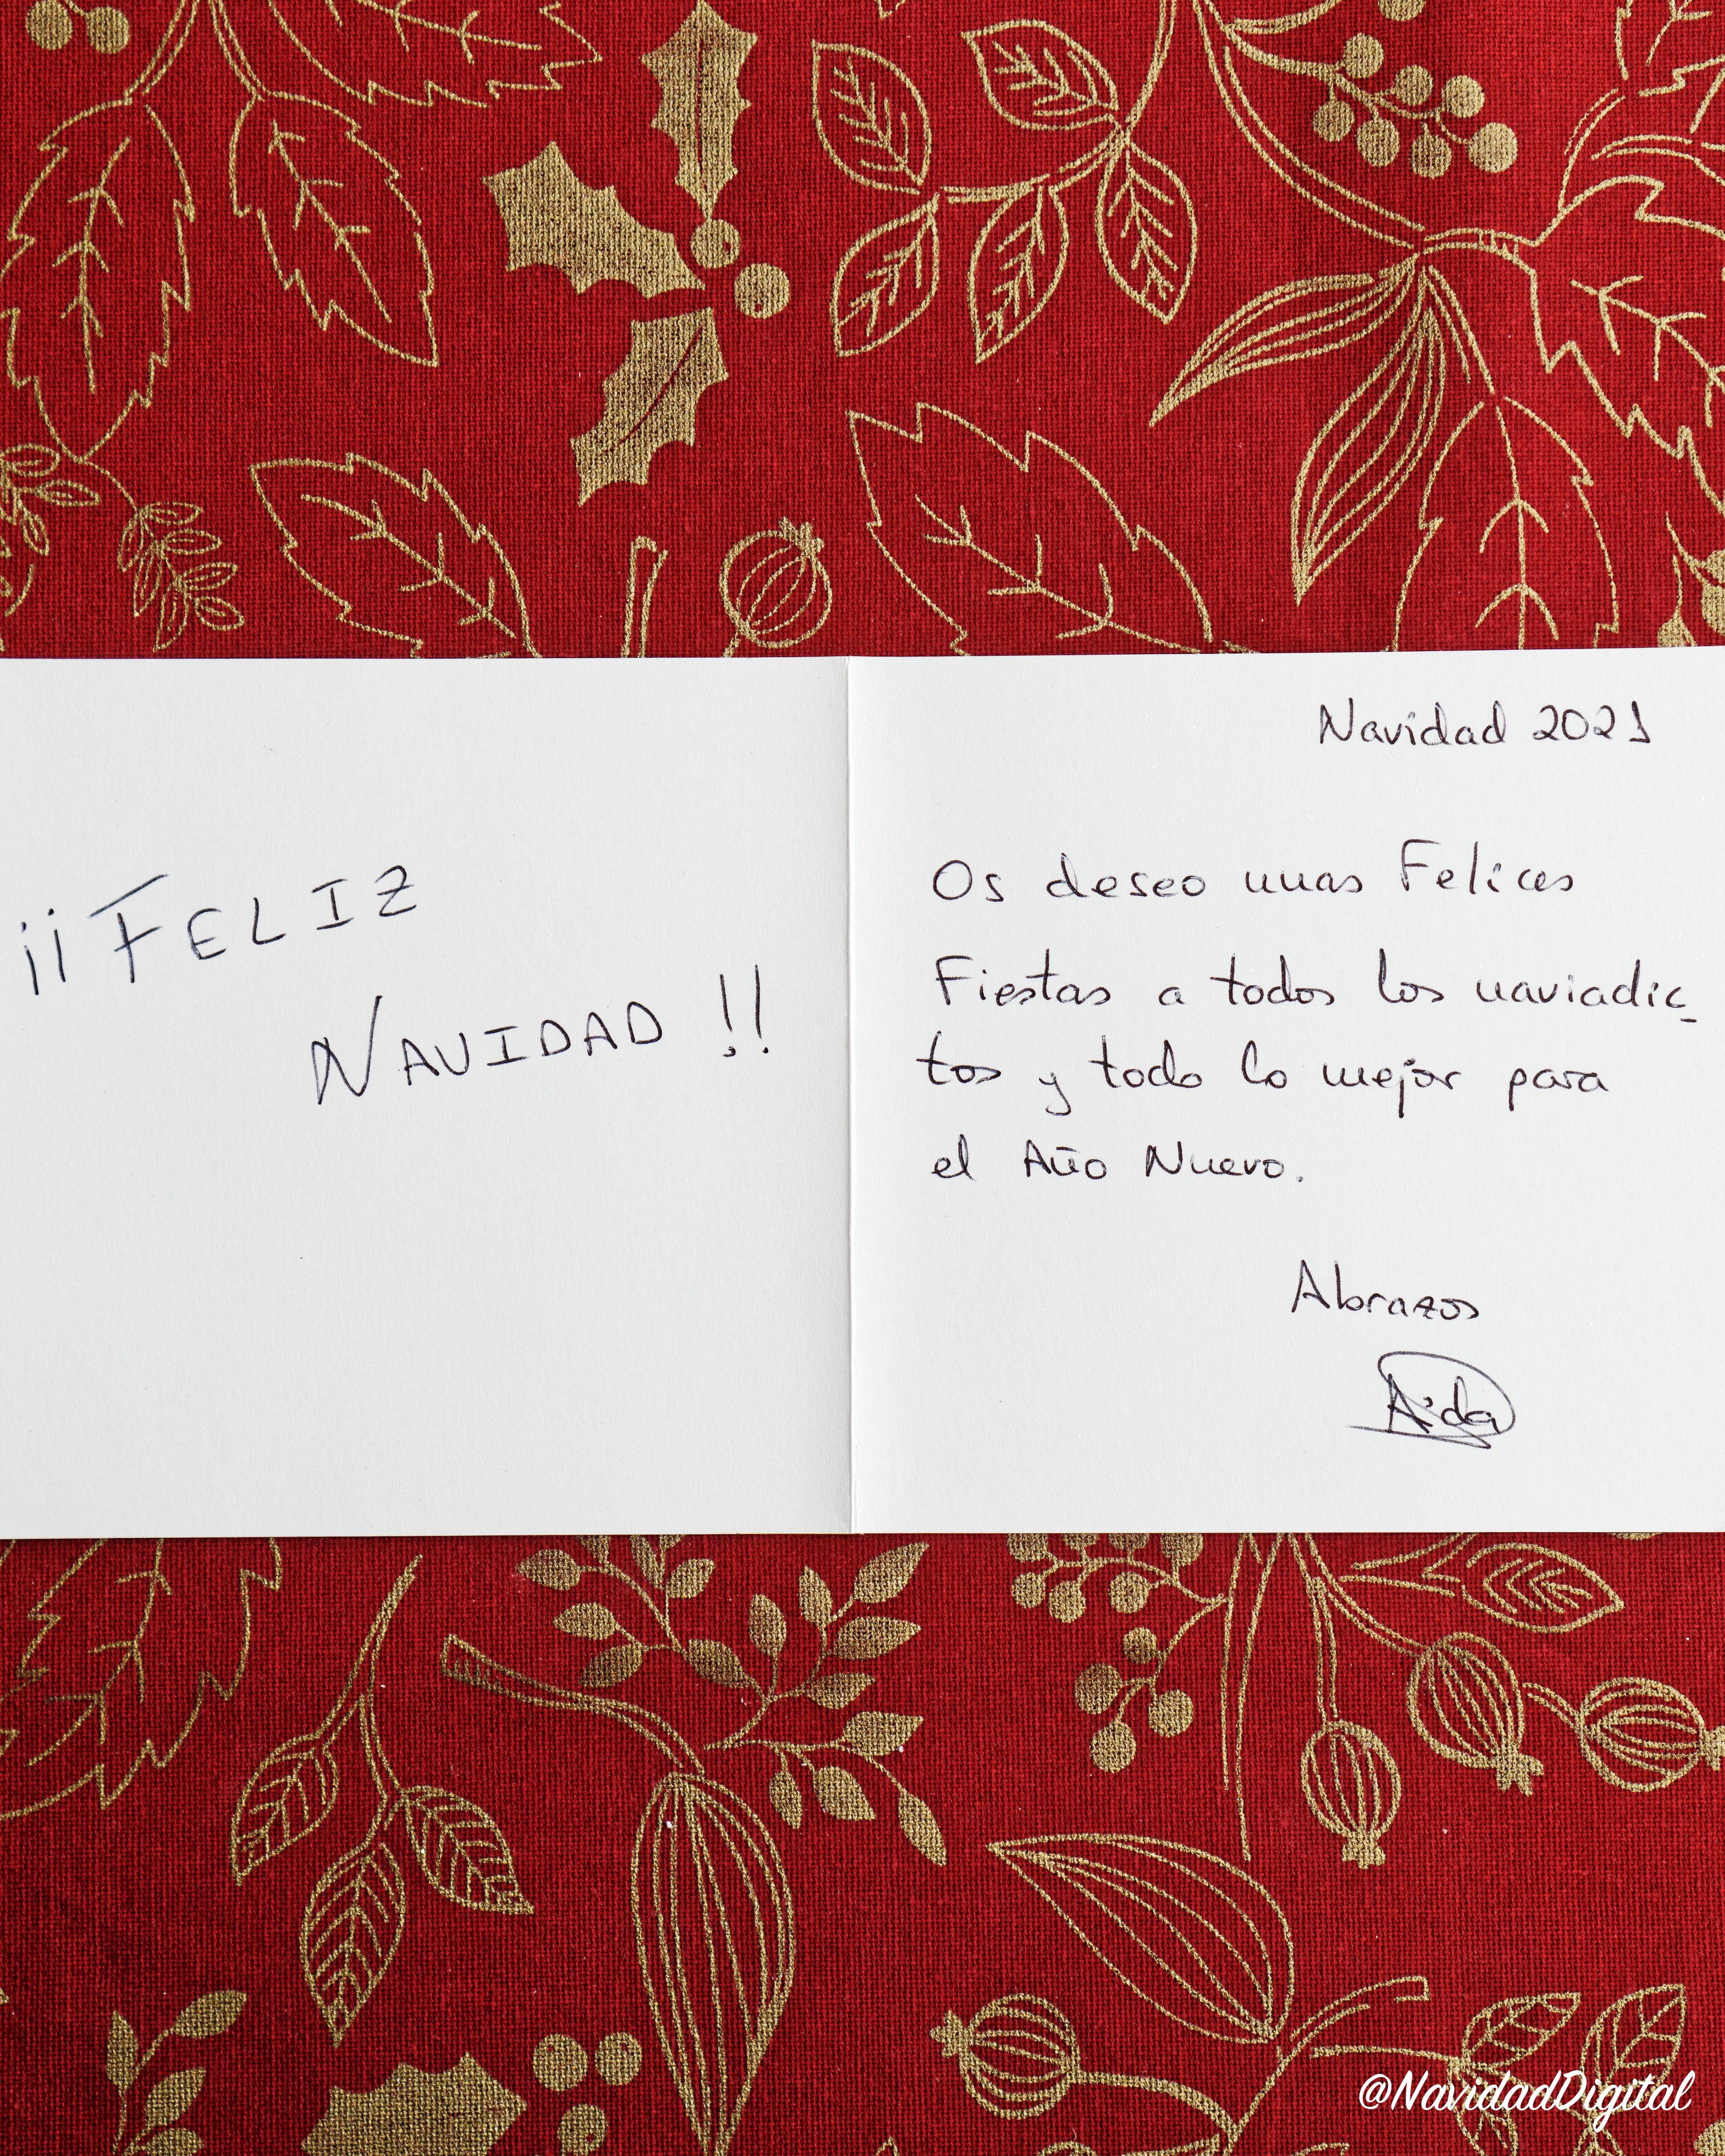 ¡¡FELIZ
NAVIDAD!!
Navidad 2021
Os deseo unas Felices
Fiestas a todos los naviadic-
tos y todo lo mejor para
el Año Nuevo.
Abrazos
Aida
@NavidadDigital